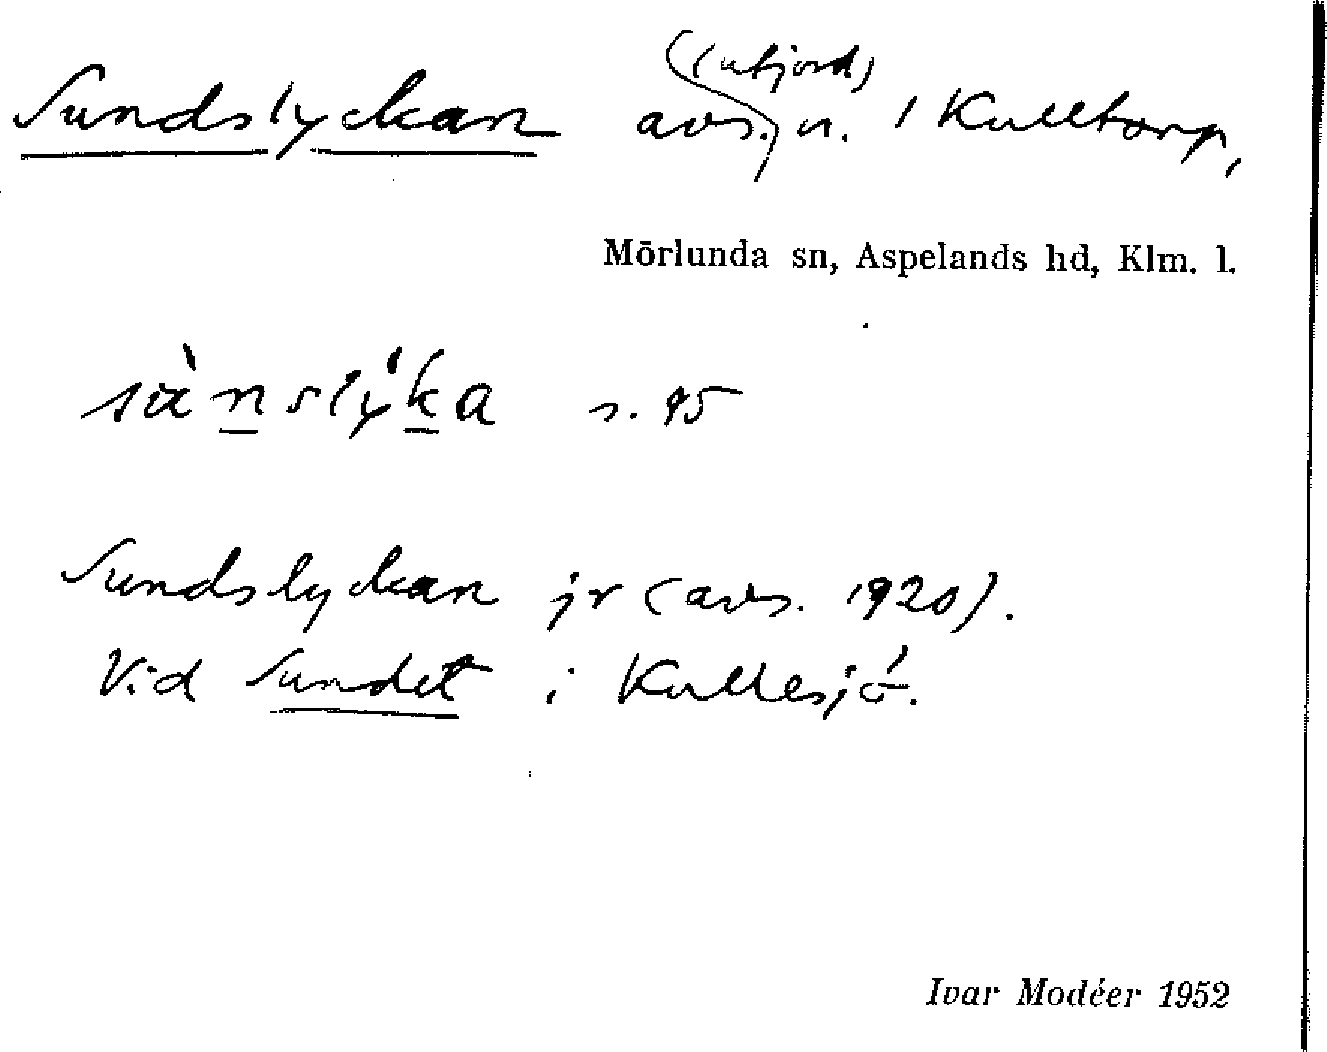 Sundslyckan avs. (utjord) n. / Kulltorp,
Mörlunda sn, Aspelands hd, Klm. l.
s. 95
Sundslyckan jr (avs. 1920).
Vid Sundet i Kullesjö.
Ivar Modéer 1952